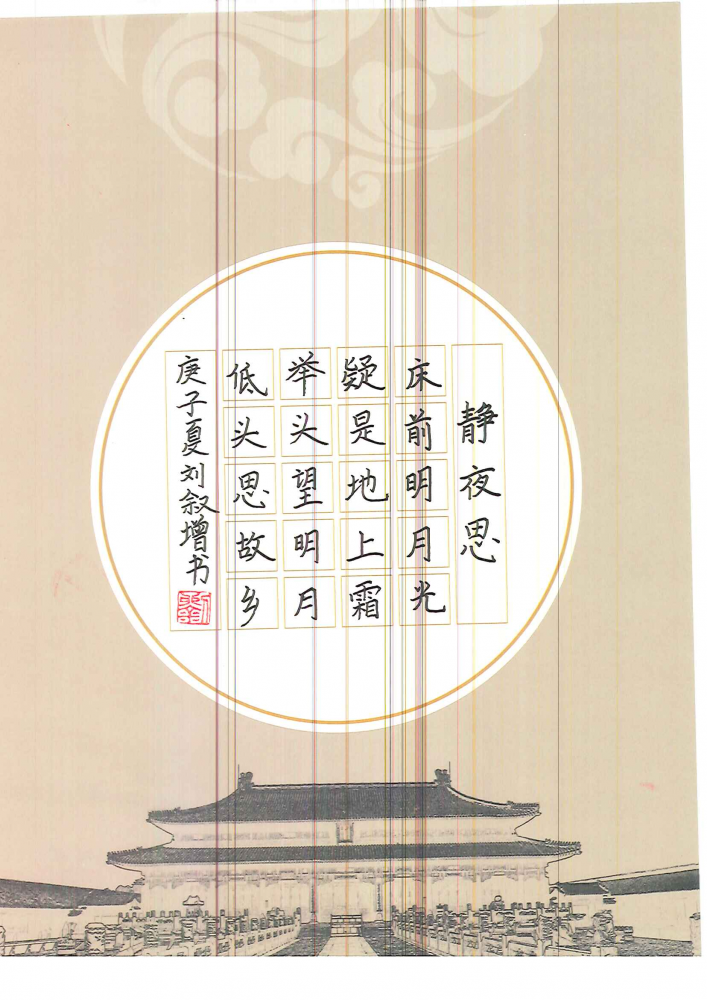 静夜思
床前明月光
疑是地上霜
举头望明月
低头思故乡
庚子夏刘叙增书